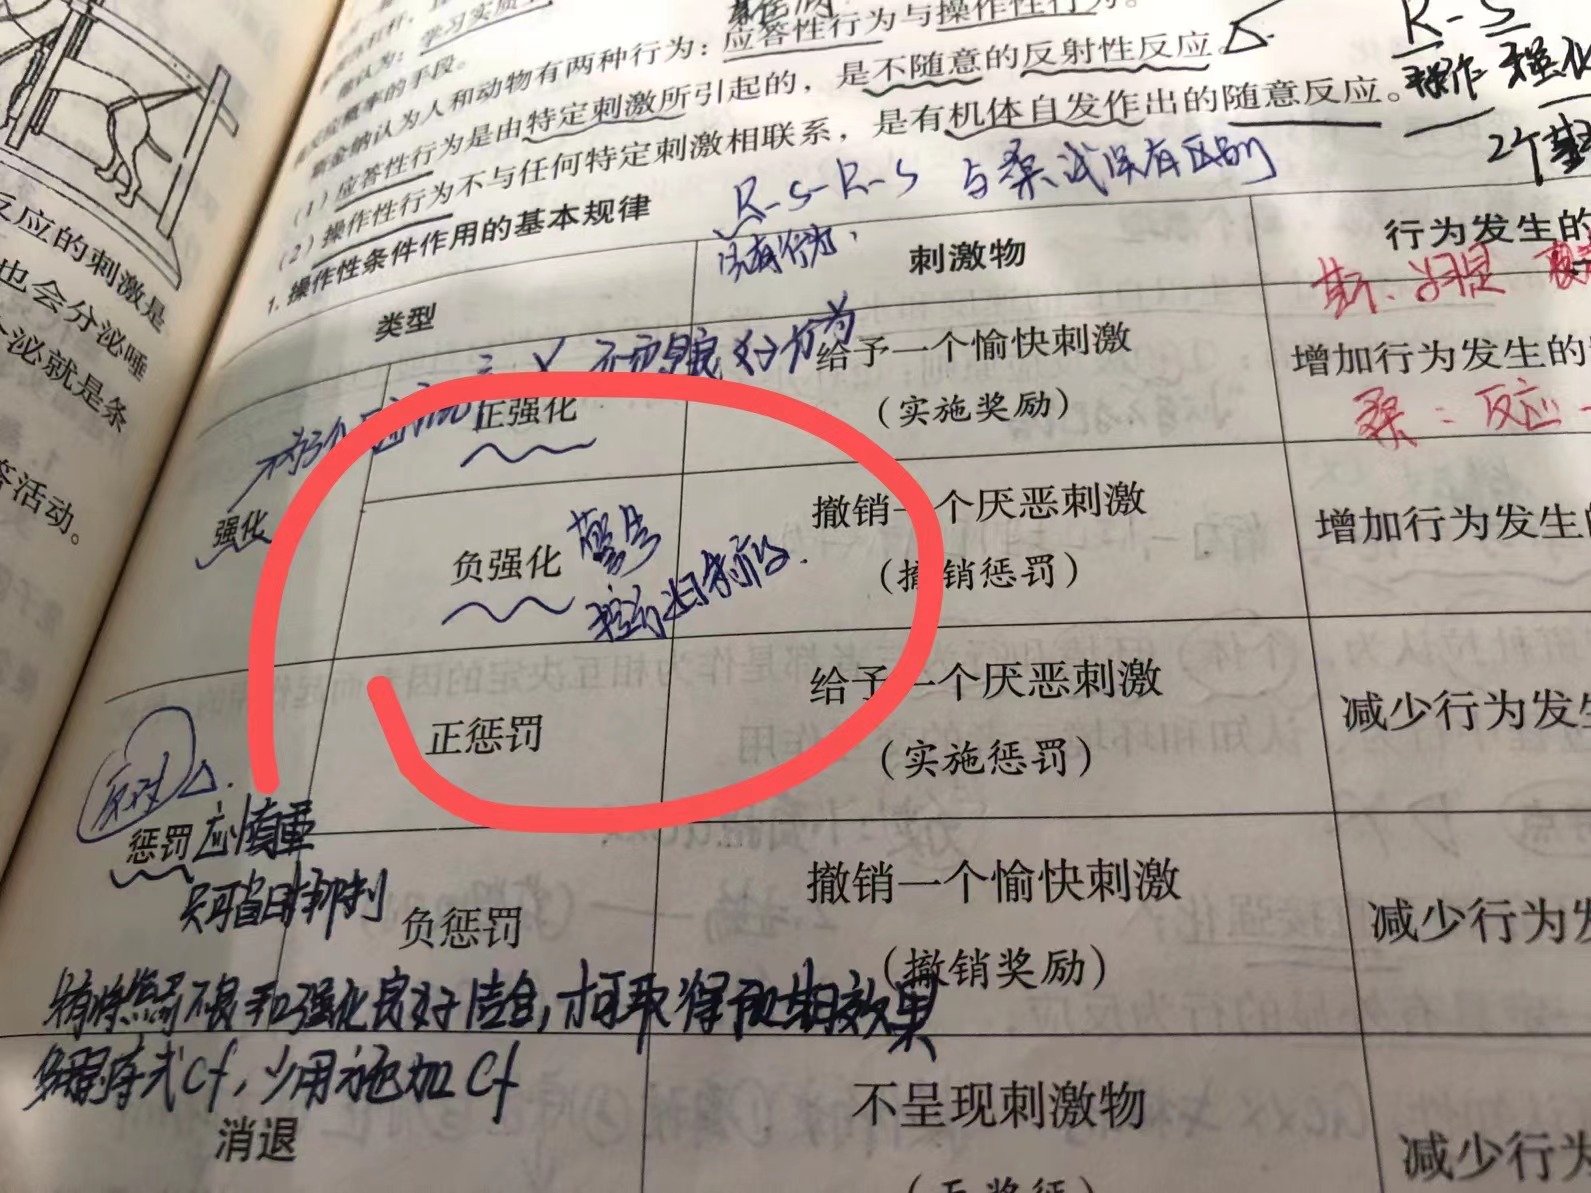 学习实质
斯金纳认为人和动物有两种行为：应答性行为与操作性行为。
概率的手段。
（1）应答性行为是由特定刺激所引起的，是不随意的反射性反应。
（2）操作性行为不与任何特定刺激相联系，是有机体自发作出的随意反应。
R-S
操作 强化
2个
R-S-R-S 与桑试误有区别
1.操作性条件作用的基本规律
类型
刺激物
行为发生的
正强化
给予一个愉快刺激
（实施奖励）
增加行为发生的
桑：反应
强化
负强化
撤销一个厌恶刺激
（撤销惩罚）
增加行为发生的
正惩罚
给予一个厌恶刺激
（实施惩罚）
减少行为发生
惩罚 应慎重
只可当时抑制
负惩罚
撤销一个愉快刺激
（撤销奖励）
减少行为发
不良和强化良好结合，才可取得预期效果
式Cf，少用施加Cf
消退
不呈现刺激物
减少行为
反应的刺激是
也会分泌唾
分泌就是条
答活动。